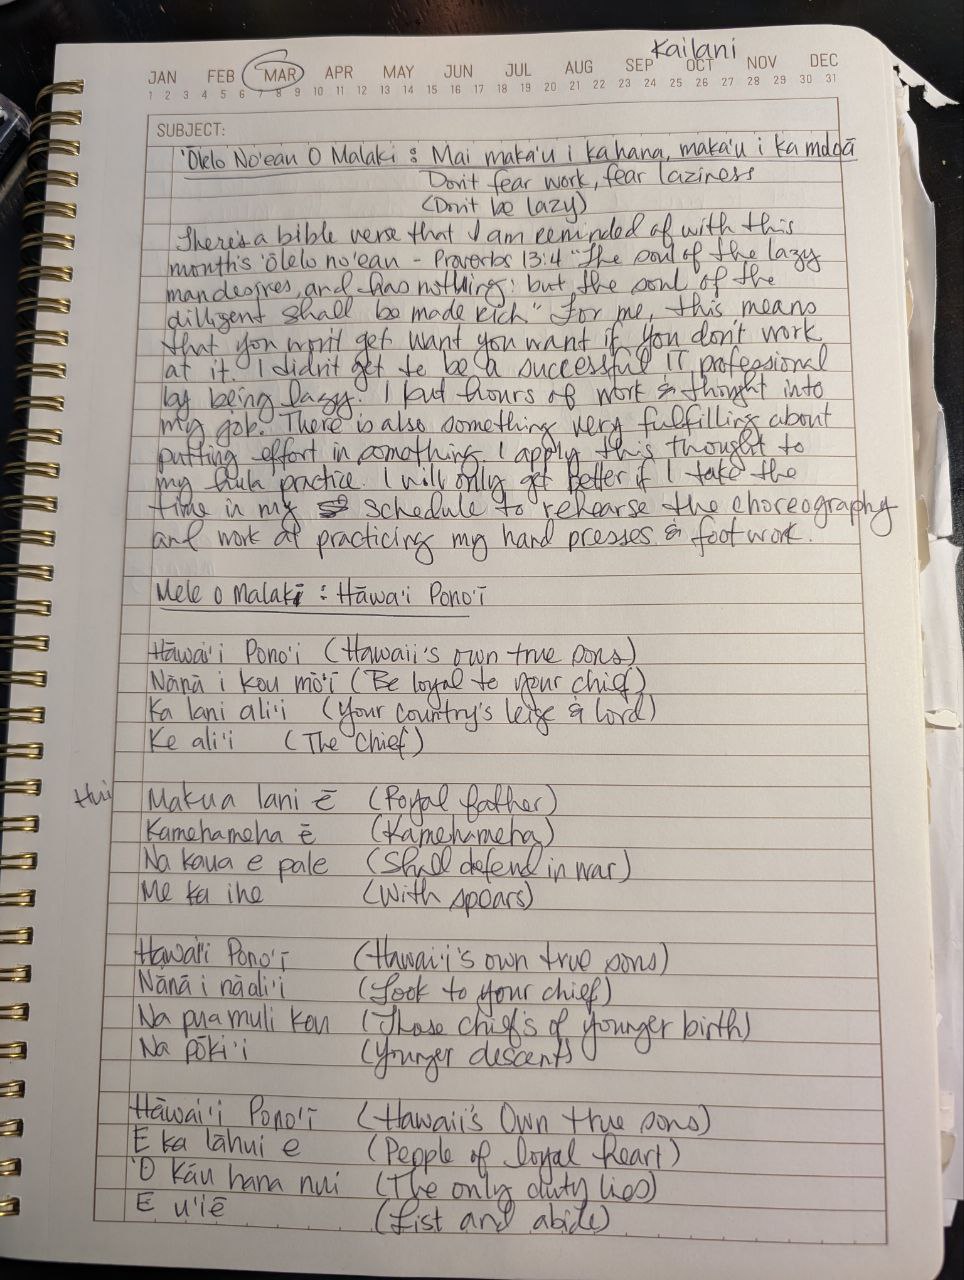 Kailani
JAN FEB MAR APR MAY JUN JUL AUG SEP OCT NOV DEC
1 2 3 4 5 6 7 8 9 10 11 12 13 14 15 16 17 18 19 20 21 22 23 24 25 26 27 28 29 30 31
SUBJECT:
'Ōlelo No'eau O Malaki : Mai maka'u i ka hana, maka'u i ka moloā
Don't fear work, fear laziness
(Don't be lazy)
There's a bible verse that I am reminded of with this
month's 'ōlelo no'eau - Proverbs 13:4 "The soul of the lazy
man desires, and has nothing: but the soul of the
dilligent shall be made rich" For me, this means
that you won't get want you want if you don't work
at it. I didn't get to be a successful IT pofessional
by being lazy. I put hours of work & thought into
my job. There is also something very fulfilling about
putting effort in something. I apply this thought to
my hula practice. I will only get better if I take the
time in my schedule to rehearse the choreography
and work at practicing my hand presses & footwork.
Mele o malaki : Hāwa'i Pono'ī
Hāwai'i Pono'i (Hawaii's own true sons)
Nānā i kou mō'ī (Be loyal to your chief)
Ka lani ali'i (Your country's leige & lord)
Ke ali'i (The chief)
Hui Makua lani ē (Royal father)
Kamehameha ē (Kamehameha)
Na kaua e pale (Shall defend in war)
Me ka ihe (With spears)
Hawai'i Pono'ī (Hawai'i's own true sons)
Nānā i nā ali'i (Look to your chief)
Na pua muli kou (Those chiefs of younger birth)
Na pōki'i (Younger descent)
Hāwai'i Pono'ī (Hawaii's Own true sons)
E ka lāhui e (People of loyal heart)
'O kāu hana nui (The only duty lies)
E u'iē (List and abide)